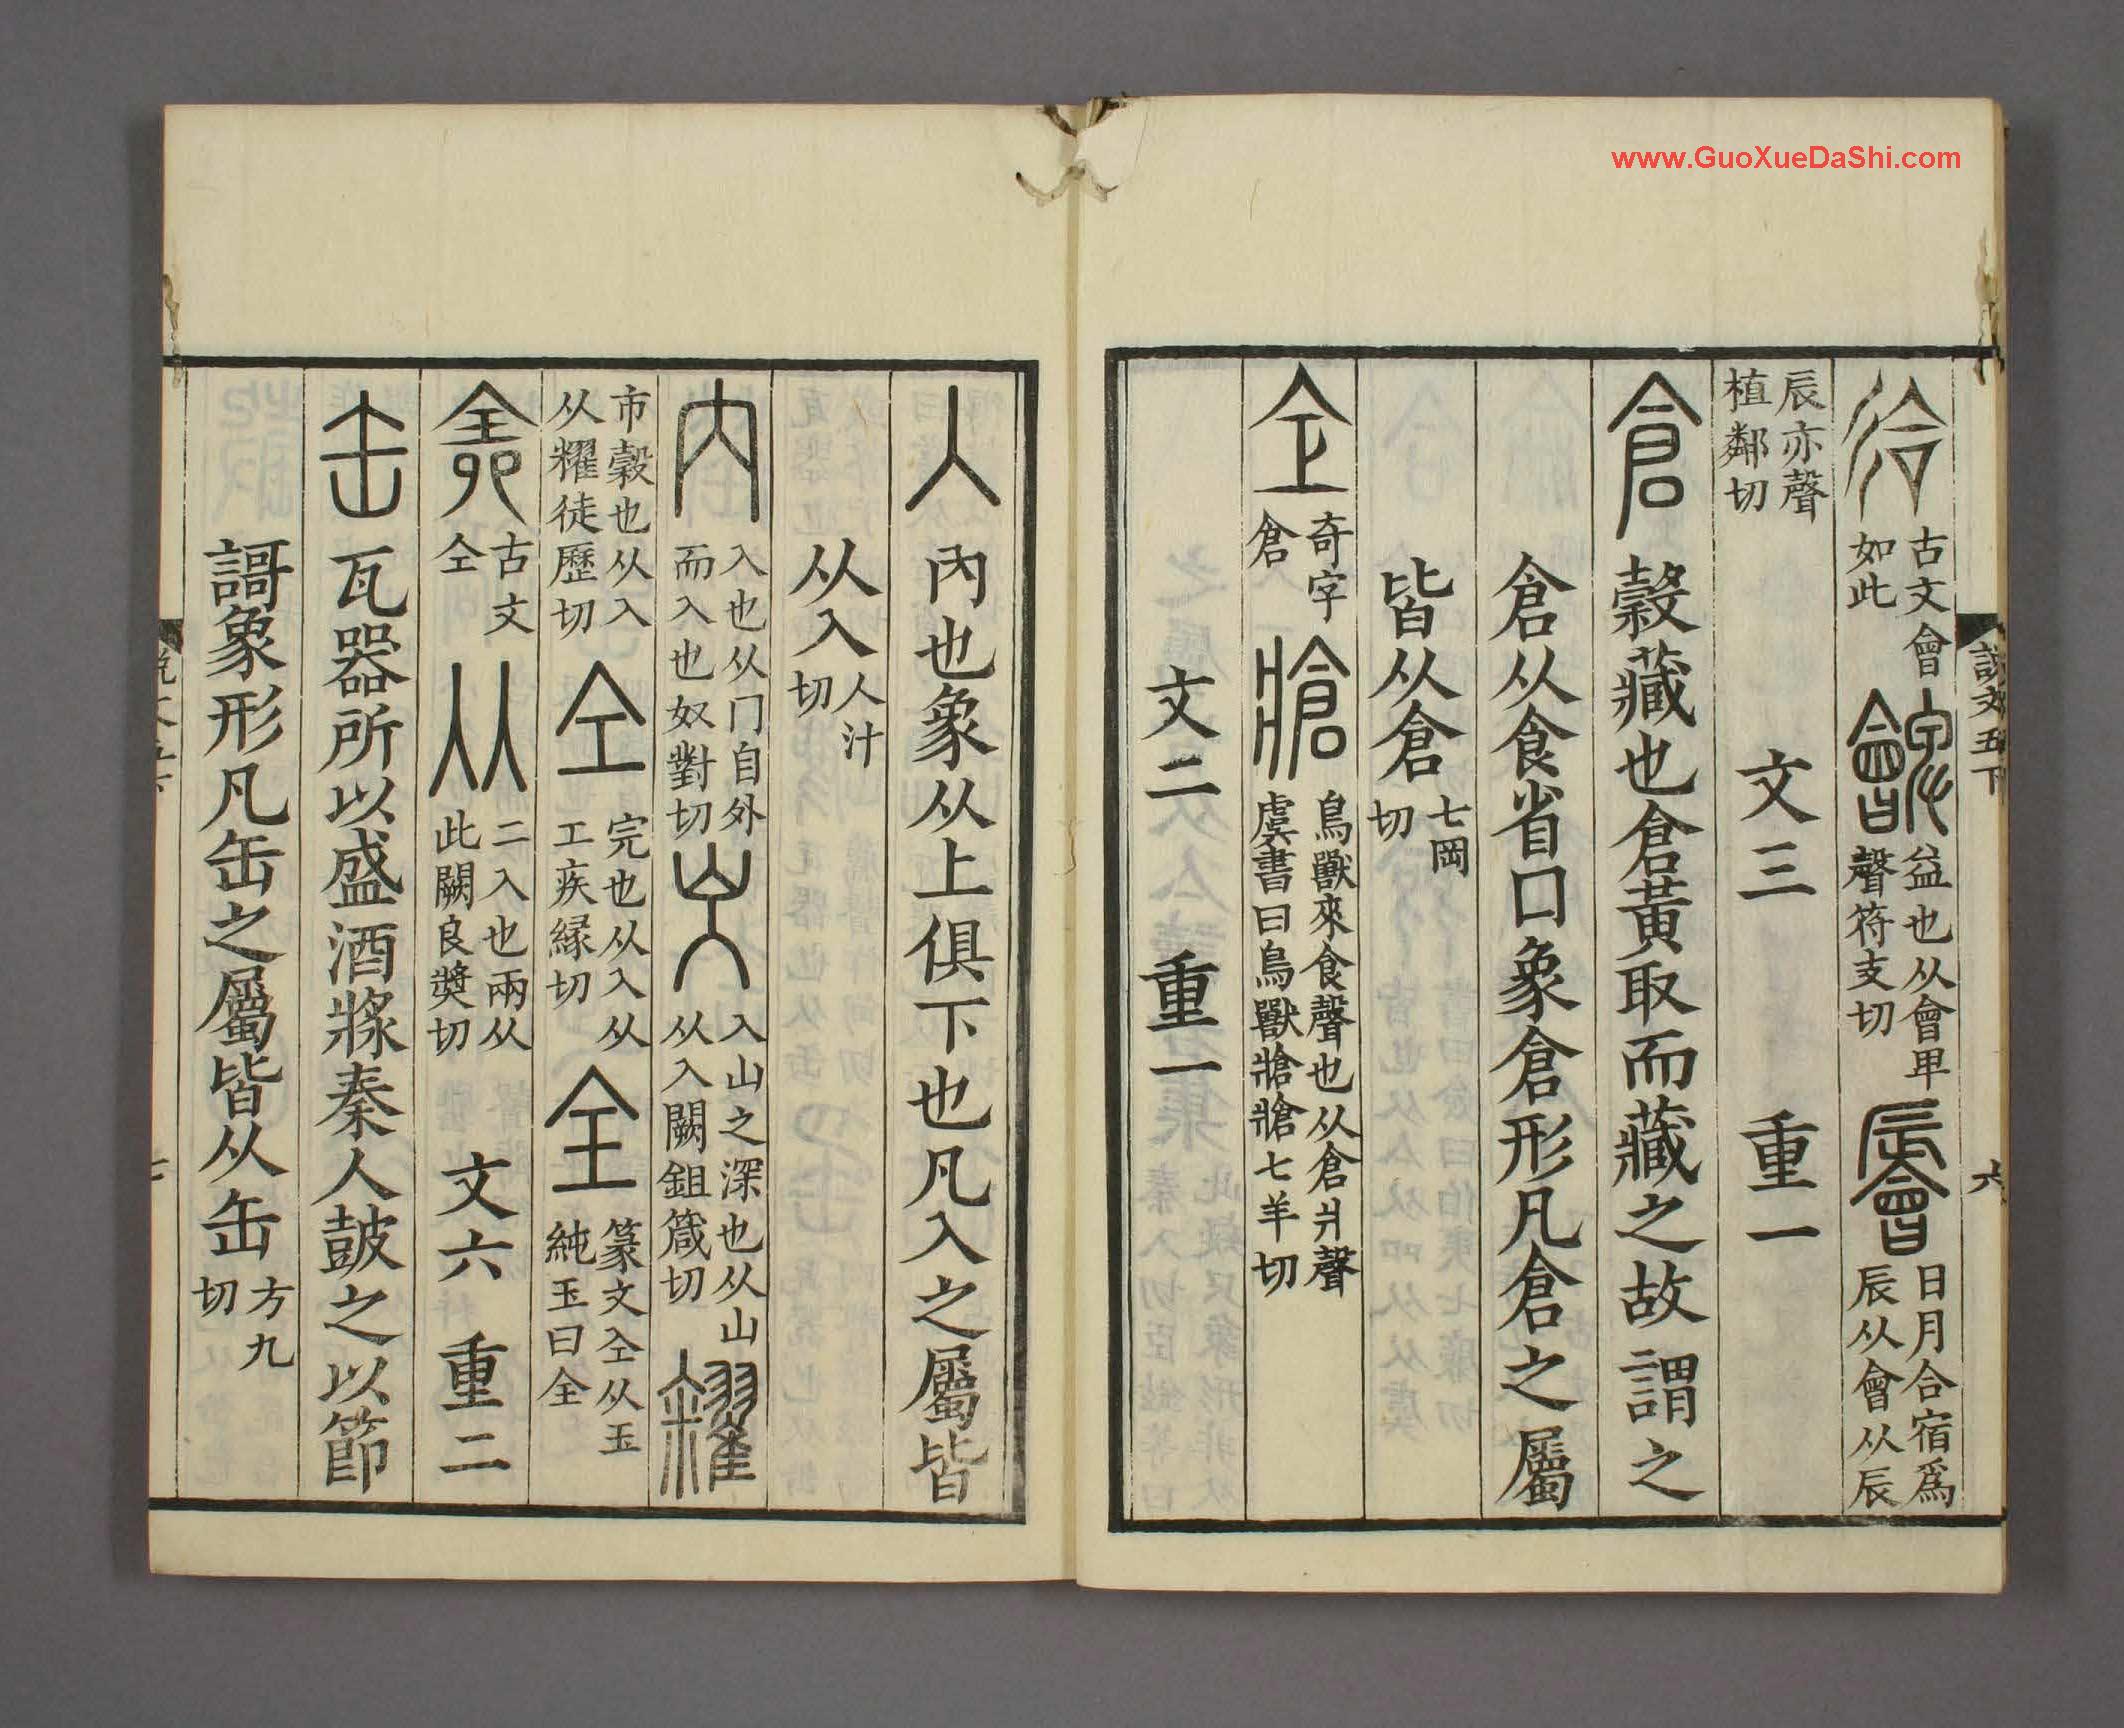 www.GuoXueDaShi.com
說文五下 六
㣛 古文會如此 朇 益也从會卑聲符支切 日月合宿爲辰从會从辰
辰亦聲植鄰切 文三 重一
倉 穀藏也倉黃取而藏之故謂之
倉从食省口象倉形凡倉之屬
皆从倉 七岡切
仺 奇字倉 牄 鳥獸來食聲也从倉爿聲虞書曰鳥獸牄牄七羊切
文二 重一
入 內也象从上俱下也凡入之屬皆
从入 人汁切
內 入也从冂自外而入也奴對切 㞤 入山之深也从山从入闕鉏箴切 糴
市穀也从入从䊮徒歷切 仝 完也从入从工疾緣切 全 篆文仝从玉純玉曰全
𠓴 古文仝 㒳 二入也兩从此闕良獎切 文六 重二
缶 瓦器所以盛酒漿秦人鼓之以節
謌象形凡缶之屬皆从缶 方九切